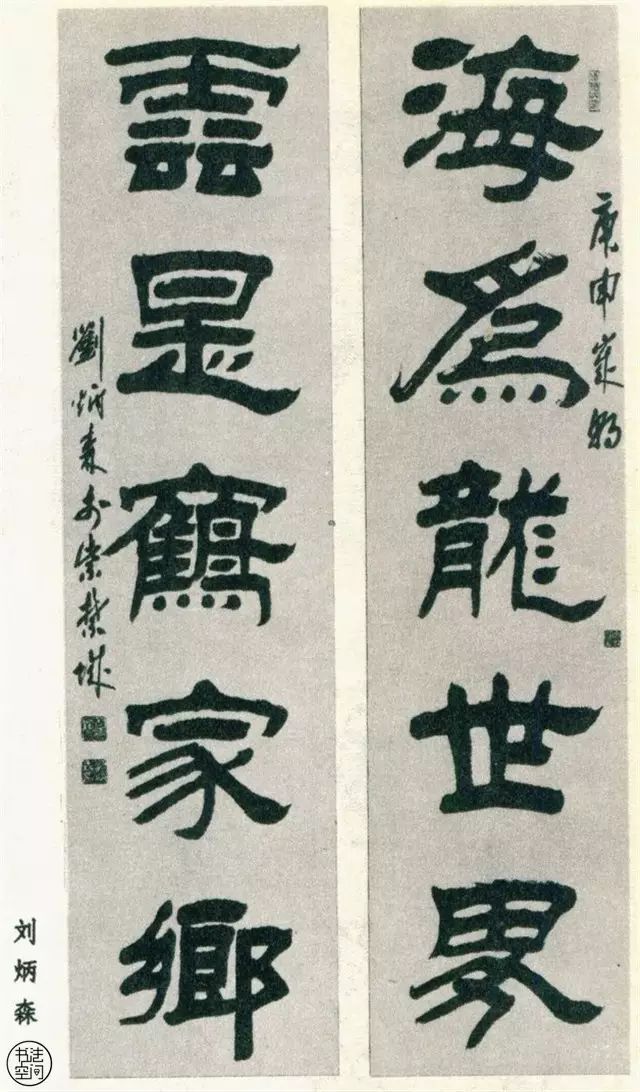 海為龍世界
庚申歲朝
雲是鶴家鄉
劉炳森於紫禁城
刘炳森
书法
空间